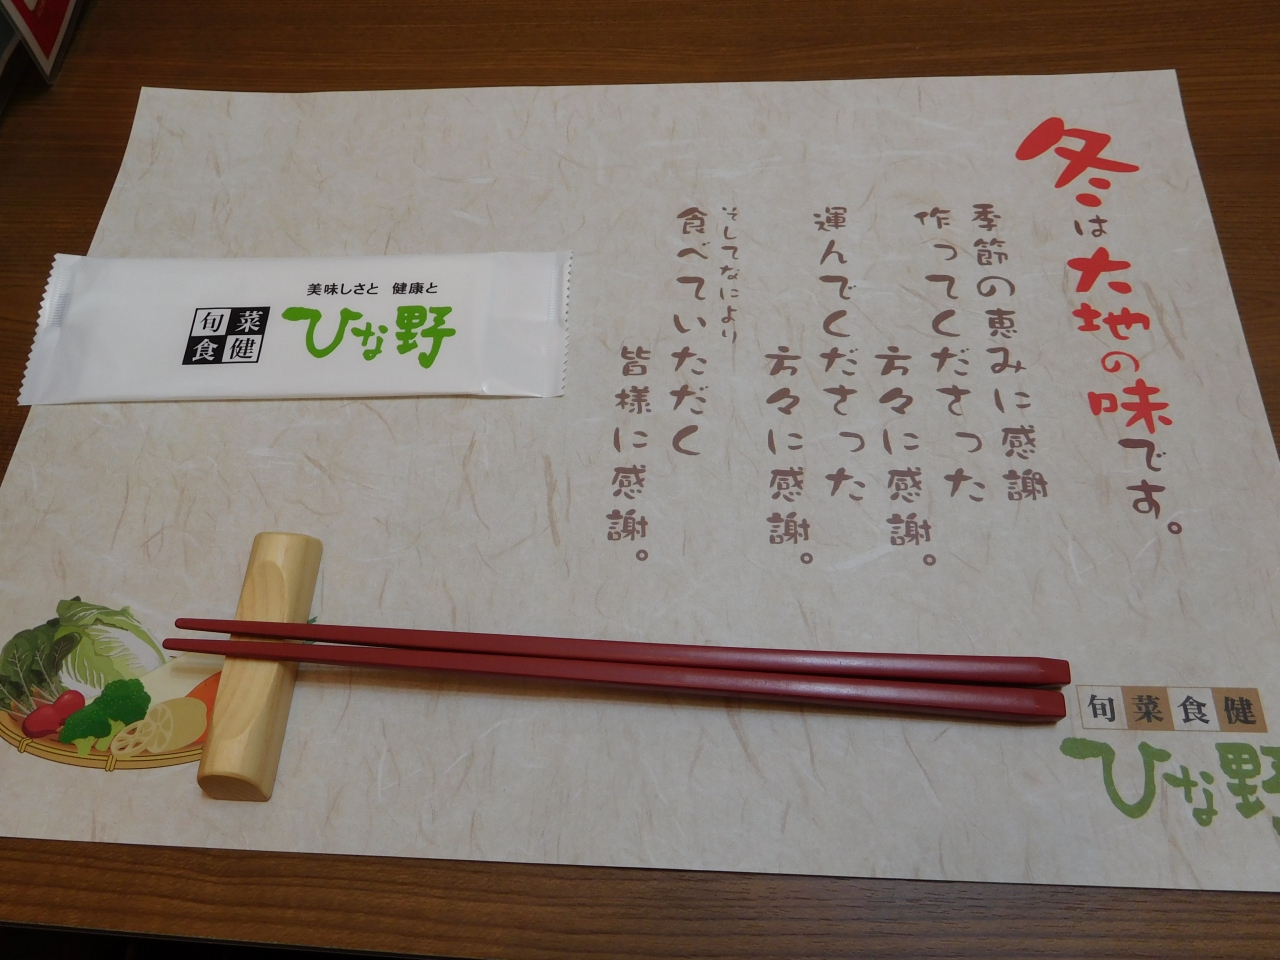 冬は大地の味です。
季節の恵みに感謝
作ってくださった
方々に感謝。
運んでくださった
方々に感謝。
そしてなにより
食べていただく
皆様に感謝。
美味しさと 健康と
旬菜
食健
ひな野
旬菜食健
ひな野